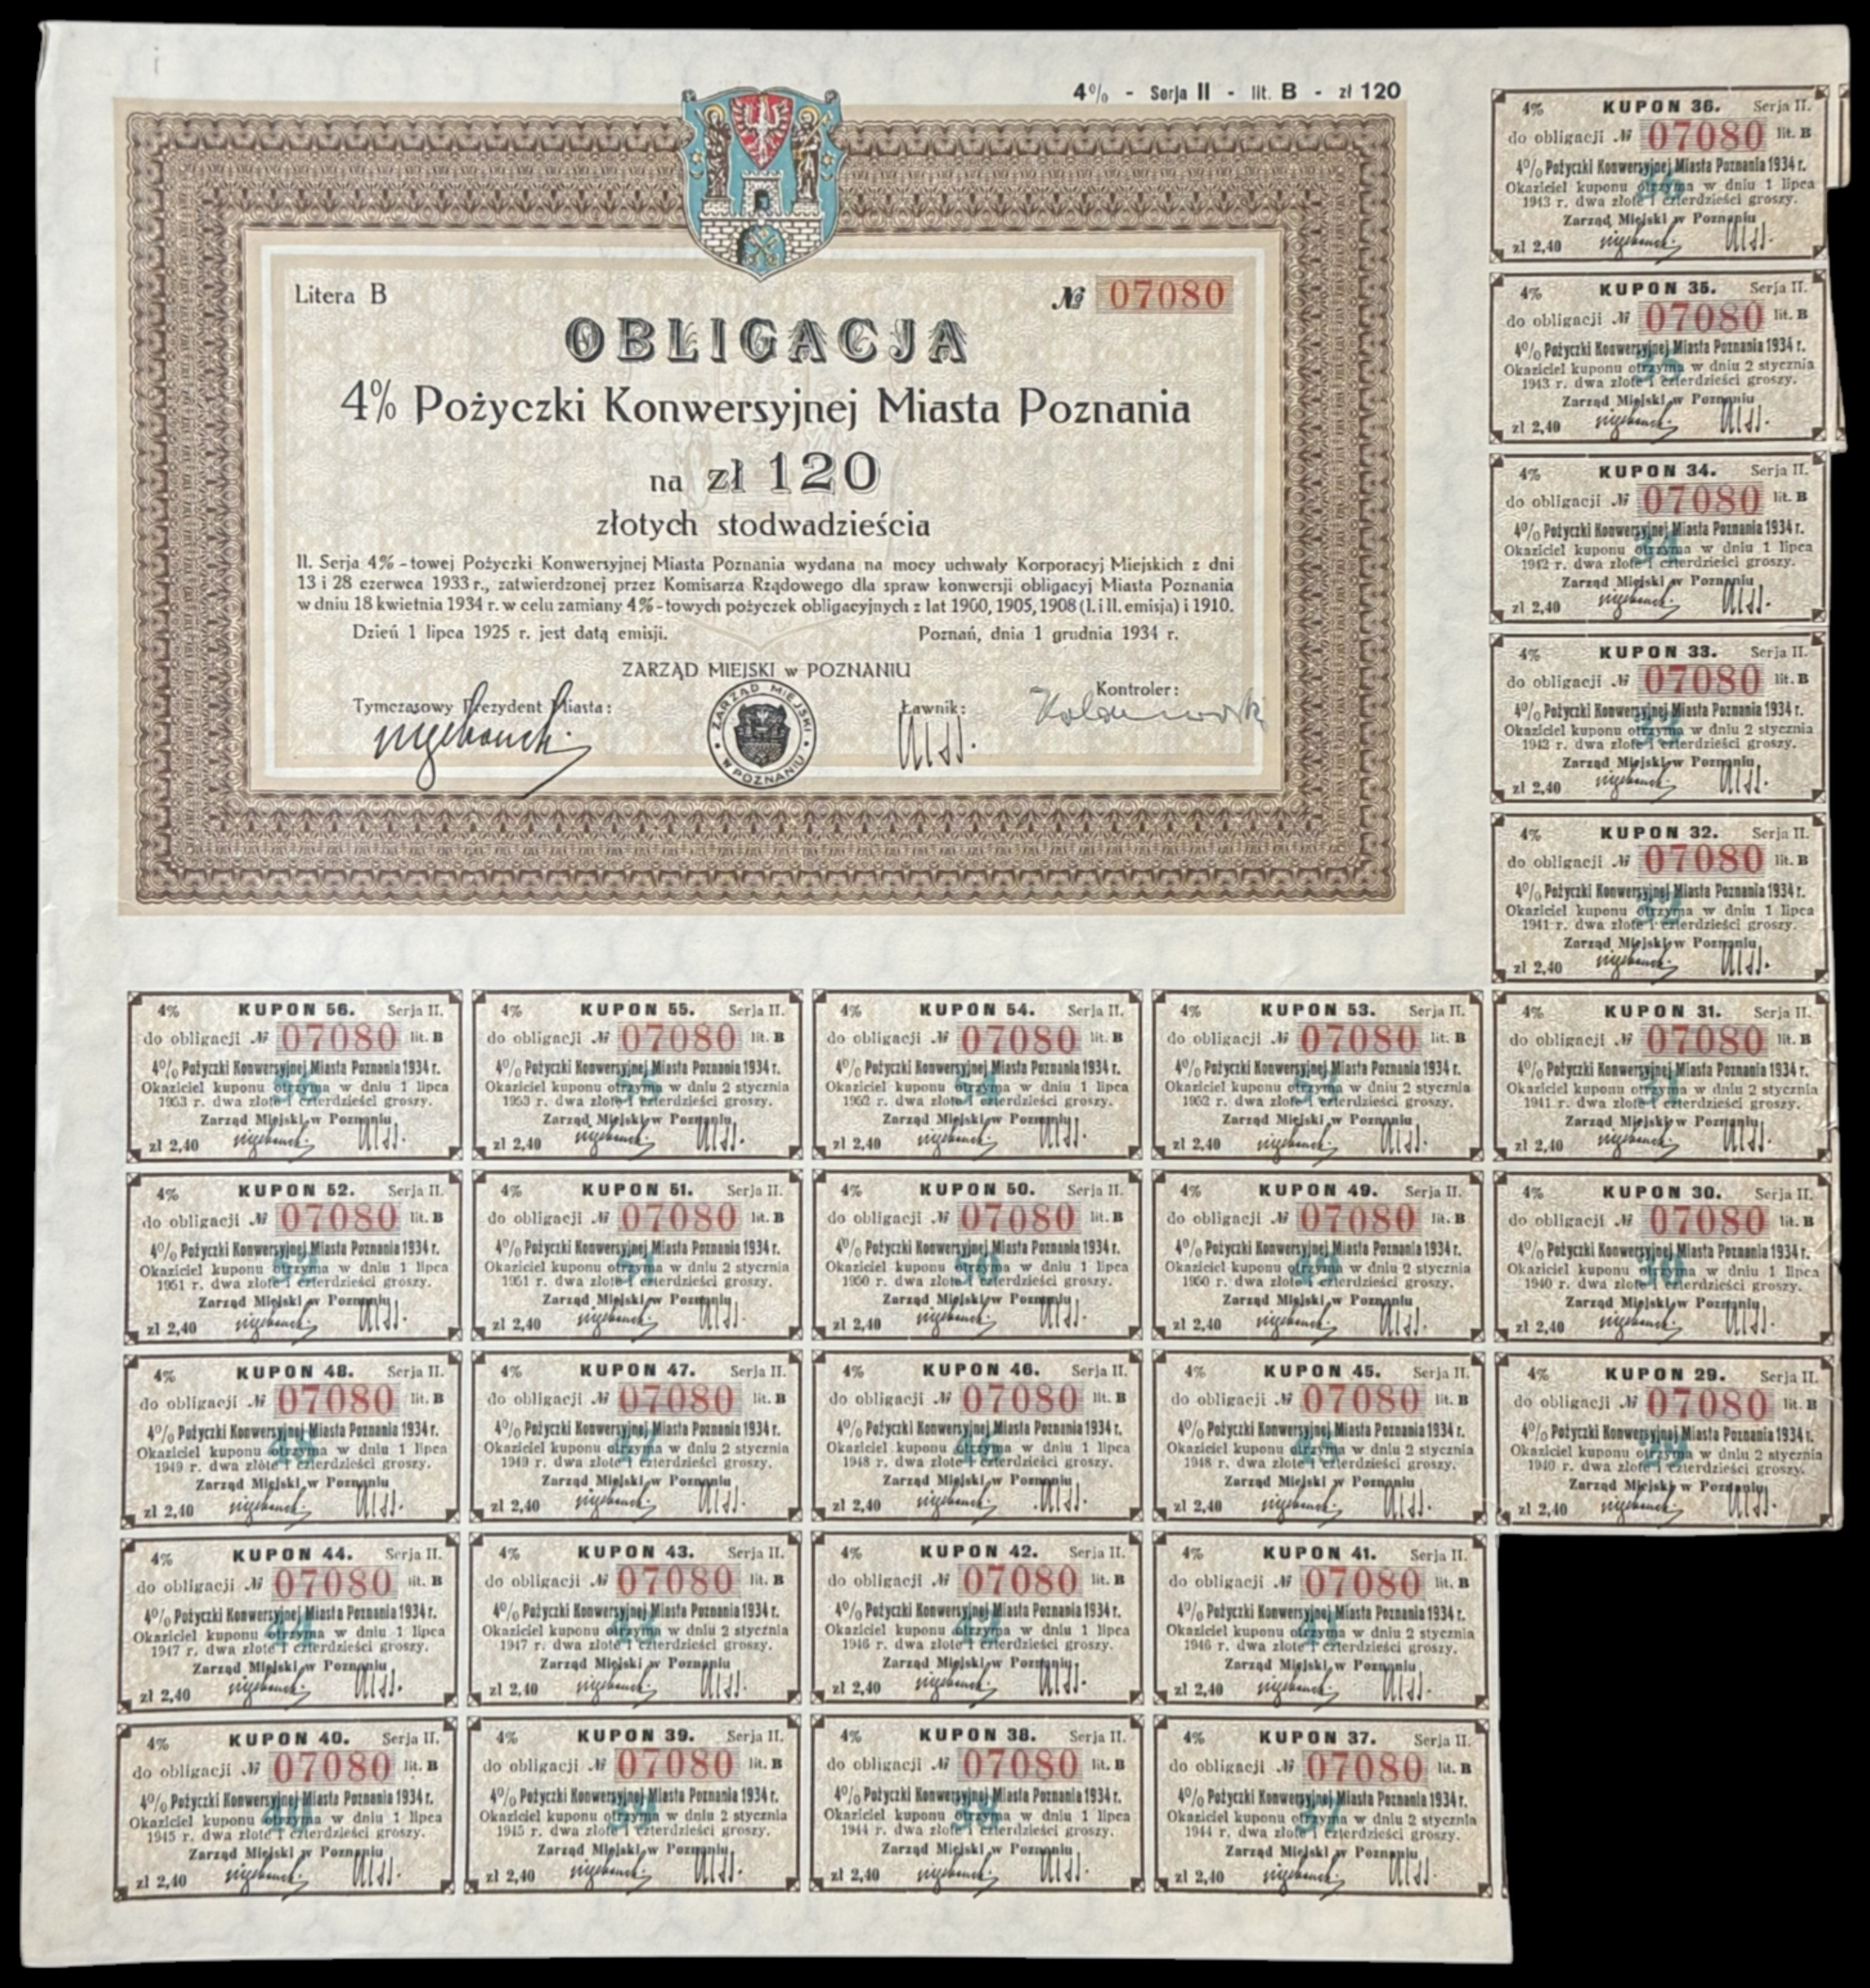 4% - Serja II - lit. B - zł 120
Litera B № 07080
OBLIGACJA
4% Pożyczki Konwersyjnej Miasta Poznania
na zł 120
złotych stodwadzieścia
II. Serja 4%-towej Pożyczki Konwersyjnej Miasta Poznania wydana na mocy uchwały Korporacyj Miejskich z dni
13 i 28 czerwca 1933 r., zatwierdzonej przez Komisarza Rządowego dla spraw konwersji obligacyj Miasta Poznania
w dniu 18 kwietnia 1934 r. w celu zamiany 4%-towych pożyczek obligacyjnych z lat 1900, 1905, 1908 (I. i II. emisja) i 1910.
Dzień 1 lipca 1925 r. jest datą emisji. Poznań, dnia 1 grudnia 1934 r.
ZARZĄD MIEJSKI w POZNANIU
Tymczasowy Prezydent Miasta: Ławnik: Kontroler:
ZARZĄD MIEJSKI W POZNANIU
4% KUPON 36. Serja II.
do obligacji № 07080 lit. B
4% Pożyczki Konwersyjnej Miasta Poznania 1934 r.
Okaziciel kuponu otrzyma w dniu 1 lipca
1943 r. dwa złote i czterdzieści groszy.
Zarząd Miejski w Poznaniu
zł 2,40
4% KUPON 35. Serja II.
do obligacji № 07080 lit. B
4% Pożyczki Konwersyjnej Miasta Poznania 1934 r.
Okaziciel kuponu otrzyma w dniu 2 stycznia
1943 r. dwa złote i czterdzieści groszy.
Zarząd Miejski w Poznaniu
zł 2,40
4% KUPON 34. Serja II.
do obligacji № 07080 lit. B
4% Pożyczki Konwersyjnej Miasta Poznania 1934 r.
Okaziciel kuponu otrzyma w dniu 1 lipca
1942 r. dwa złote i czterdzieści groszy.
Zarząd Miejski w Poznaniu
zł 2,40
4% KUPON 33. Serja II.
do obligacji № 07080 lit. B
4% Pożyczki Konwersyjnej Miasta Poznania 1934 r.
Okaziciel kuponu otrzyma w dniu 2 stycznia
1942 r. dwa złote i czterdzieści groszy.
Zarząd Miejski w Poznaniu
zł 2,40
4% KUPON 32. Serja II.
do obligacji № 07080 lit. B
4% Pożyczki Konwersyjnej Miasta Poznania 1934 r.
Okaziciel kuponu otrzyma w dniu 1 lipca
1941 r. dwa złote i czterdzieści groszy.
Zarząd Miejski w Poznaniu
zł 2,40
4% KUPON 56. Serja II.
do obligacji № 07080 lit. B
4% Pożyczki Konwersyjnej Miasta Poznania 1934 r.
Okaziciel kuponu otrzyma w dniu 1 lipca
1953 r. dwa złote i czterdzieści groszy.
Zarząd Miejski w Poznaniu
zł 2,40
4% KUPON 55. Serja II.
do obligacji № 07080 lit. B
4% Pożyczki Konwersyjnej Miasta Poznania 1934 r.
Okaziciel kuponu otrzyma w dniu 2 stycznia
1953 r. dwa złote i czterdzieści groszy.
Zarząd Miejski w Poznaniu
zł 2,40
4% KUPON 54. Serja II.
do obligacji № 07080 lit. B
4% Pożyczki Konwersyjnej Miasta Poznania 1934 r.
Okaziciel kuponu otrzyma w dniu 1 lipca
1952 r. dwa złote i czterdzieści groszy.
Zarząd Miejski w Poznaniu
zł 2,40
4% KUPON 53. Serja II.
do obligacji № 07080 lit. B
4% Pożyczki Konwersyjnej Miasta Poznania 1934 r.
Okaziciel kuponu otrzyma w dniu 2 stycznia
1952 r. dwa złote i czterdzieści groszy.
Zarząd Miejski w Poznaniu
zł 2,40
4% KUPON 31. Serja II.
do obligacji № 07080 lit. B
4% Pożyczki Konwersyjnej Miasta Poznania 1934 r.
Okaziciel kuponu otrzyma w dniu 2 stycznia
1941 r. dwa złote i czterdzieści groszy.
Zarząd Miejski w Poznaniu
zł 2,40
4% KUPON 52. Serja II.
do obligacji № 07080 lit. B
4% Pożyczki Konwersyjnej Miasta Poznania 1934 r.
Okaziciel kuponu otrzyma w dniu 1 lipca
1951 r. dwa złote i czterdzieści groszy.
Zarząd Miejski w Poznaniu
zł 2,40
4% KUPON 51. Serja II.
do obligacji № 07080 lit. B
4% Pożyczki Konwersyjnej Miasta Poznania 1934 r.
Okaziciel kuponu otrzyma w dniu 2 stycznia
1951 r. dwa złote i czterdzieści groszy.
Zarząd Miejski w Poznaniu
zł 2,40
4% KUPON 50. Serja II.
do obligacji № 07080 lit. B
4% Pożyczki Konwersyjnej Miasta Poznania 1934 r.
Okaziciel kuponu otrzyma w dniu 1 lipca
1950 r. dwa złote i czterdzieści groszy.
Zarząd Miejski w Poznaniu
zł 2,40
4% KUPON 49. Serja II.
do obligacji № 07080 lit. B
4% Pożyczki Konwersyjnej Miasta Poznania 1934 r.
Okaziciel kuponu otrzyma w dniu 2 stycznia
1950 r. dwa złote i czterdzieści groszy.
Zarząd Miejski w Poznaniu
zł 2,40
4% KUPON 30. Serja II.
do obligacji № 07080 lit. B
4% Pożyczki Konwersyjnej Miasta Poznania 1934 r.
Okaziciel kuponu otrzyma w dniu 1 lipca
1940 r. dwa złote i czterdzieści groszy.
Zarząd Miejski w Poznaniu
zł 2,40
4% KUPON 48. Serja II.
do obligacji № 07080 lit. B
4% Pożyczki Konwersyjnej Miasta Poznania 1934 r.
Okaziciel kuponu otrzyma w dniu 1 lipca
1949 r. dwa złote i czterdzieści groszy.
Zarząd Miejski w Poznaniu
zł 2,40
4% KUPON 47. Serja II.
do obligacji № 07080 lit. B
4% Pożyczki Konwersyjnej Miasta Poznania 1934 r.
Okaziciel kuponu otrzyma w dniu 2 stycznia
1949 r. dwa złote i czterdzieści groszy.
Zarząd Miejski w Poznaniu
zł 2,40
4% KUPON 46. Serja II.
do obligacji № 07080 lit. B
4% Pożyczki Konwersyjnej Miasta Poznania 1934 r.
Okaziciel kuponu otrzyma w dniu 1 lipca
1948 r. dwa złote i czterdzieści groszy.
Zarząd Miejski w Poznaniu
zł 2,40
4% KUPON 45. Serja II.
do obligacji № 07080 lit. B
4% Pożyczki Konwersyjnej Miasta Poznania 1934 r.
Okaziciel kuponu otrzyma w dniu 2 stycznia
1948 r. dwa złote i czterdzieści groszy.
Zarząd Miejski w Poznaniu
zł 2,40
4% KUPON 29. Serja II.
do obligacji № 07080 lit. B
4% Pożyczki Konwersyjnej Miasta Poznania 1934 r.
Okaziciel kuponu otrzyma w dniu 2 stycznia
1940 r. dwa złote i czterdzieści groszy.
Zarząd Miejski w Poznaniu
zł 2,40
4% KUPON 44. Serja II.
do obligacji № 07080 lit. B
4% Pożyczki Konwersyjnej Miasta Poznania 1934 r.
Okaziciel kuponu otrzyma w dniu 1 lipca
1947 r. dwa złote i czterdzieści groszy.
Zarząd Miejski w Poznaniu
zł 2,40
4% KUPON 43. Serja II.
do obligacji № 07080 lit. B
4% Pożyczki Konwersyjnej Miasta Poznania 1934 r.
Okaziciel kuponu otrzyma w dniu 2 stycznia
1947 r. dwa złote i czterdzieści groszy.
Zarząd Miejski w Poznaniu
zł 2,40
4% KUPON 42. Serja II.
do obligacji № 07080 lit. B
4% Pożyczki Konwersyjnej Miasta Poznania 1934 r.
Okaziciel kuponu otrzyma w dniu 1 lipca
1946 r. dwa złote i czterdzieści groszy.
Zarząd Miejski w Poznaniu
zł 2,40
4% KUPON 41. Serja II.
do obligacji № 07080 lit. B
4% Pożyczki Konwersyjnej Miasta Poznania 1934 r.
Okaziciel kuponu otrzyma w dniu 2 stycznia
1946 r. dwa złote i czterdzieści groszy.
Zarząd Miejski w Poznaniu
zł 2,40
4% KUPON 40. Serja II.
do obligacji № 07080 lit. B
4% Pożyczki Konwersyjnej Miasta Poznania 1934 r.
Okaziciel kuponu otrzyma w dniu 1 lipca
1945 r. dwa złote i czterdzieści groszy.
Zarząd Miejski w Poznaniu
zł 2,40
4% KUPON 39. Serja II.
do obligacji № 07080 lit. B
4% Pożyczki Konwersyjnej Miasta Poznania 1934 r.
Okaziciel kuponu otrzyma w dniu 2 stycznia
1945 r. dwa złote i czterdzieści groszy.
Zarząd Miejski w Poznaniu
zł 2,40
4% KUPON 38. Serja II.
do obligacji № 07080 lit. B
4% Pożyczki Konwersyjnej Miasta Poznania 1934 r.
Okaziciel kuponu otrzyma w dniu 1 lipca
1944 r. dwa złote i czterdzieści groszy.
Zarząd Miejski w Poznaniu
zł 2,40
4% KUPON 37. Serja II.
do obligacji № 07080 lit. B
4% Pożyczki Konwersyjnej Miasta Poznania 1934 r.
Okaziciel kuponu otrzyma w dniu 2 stycznia
1944 r. dwa złote i czterdzieści groszy.
Zarząd Miejski w Poznaniu
zł 2,40